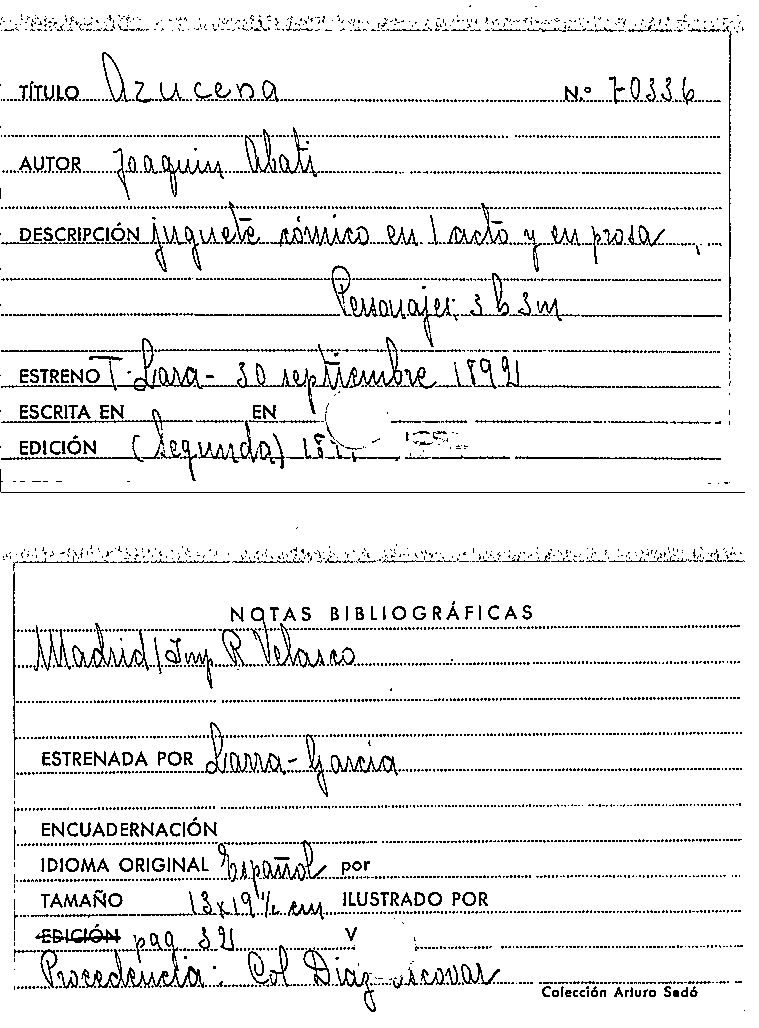 TÍTULO Azucena N.º 70336
AUTOR Joaquin Abati
DESCRIPCIÓN juguete cómico en 1 acto y en prosa
Personajes: 3 h 3 m
ESTRENO T. Lara - 30 septiembre 1892
ESCRITA EN EN
EDICIÓN (Segunda)
NOTAS BIBLIOGRÁFICAS
Madrid / Imp R Velasco
ESTRENADA POR Larra - García
ENCUADERNACIÓN
IDIOMA ORIGINAL Español por
TAMAÑO 13x19½ cm ILUSTRADO POR
EDICIÓN pag 32 V
Procedencia: Col Diaz
Colección Arturo Sedó